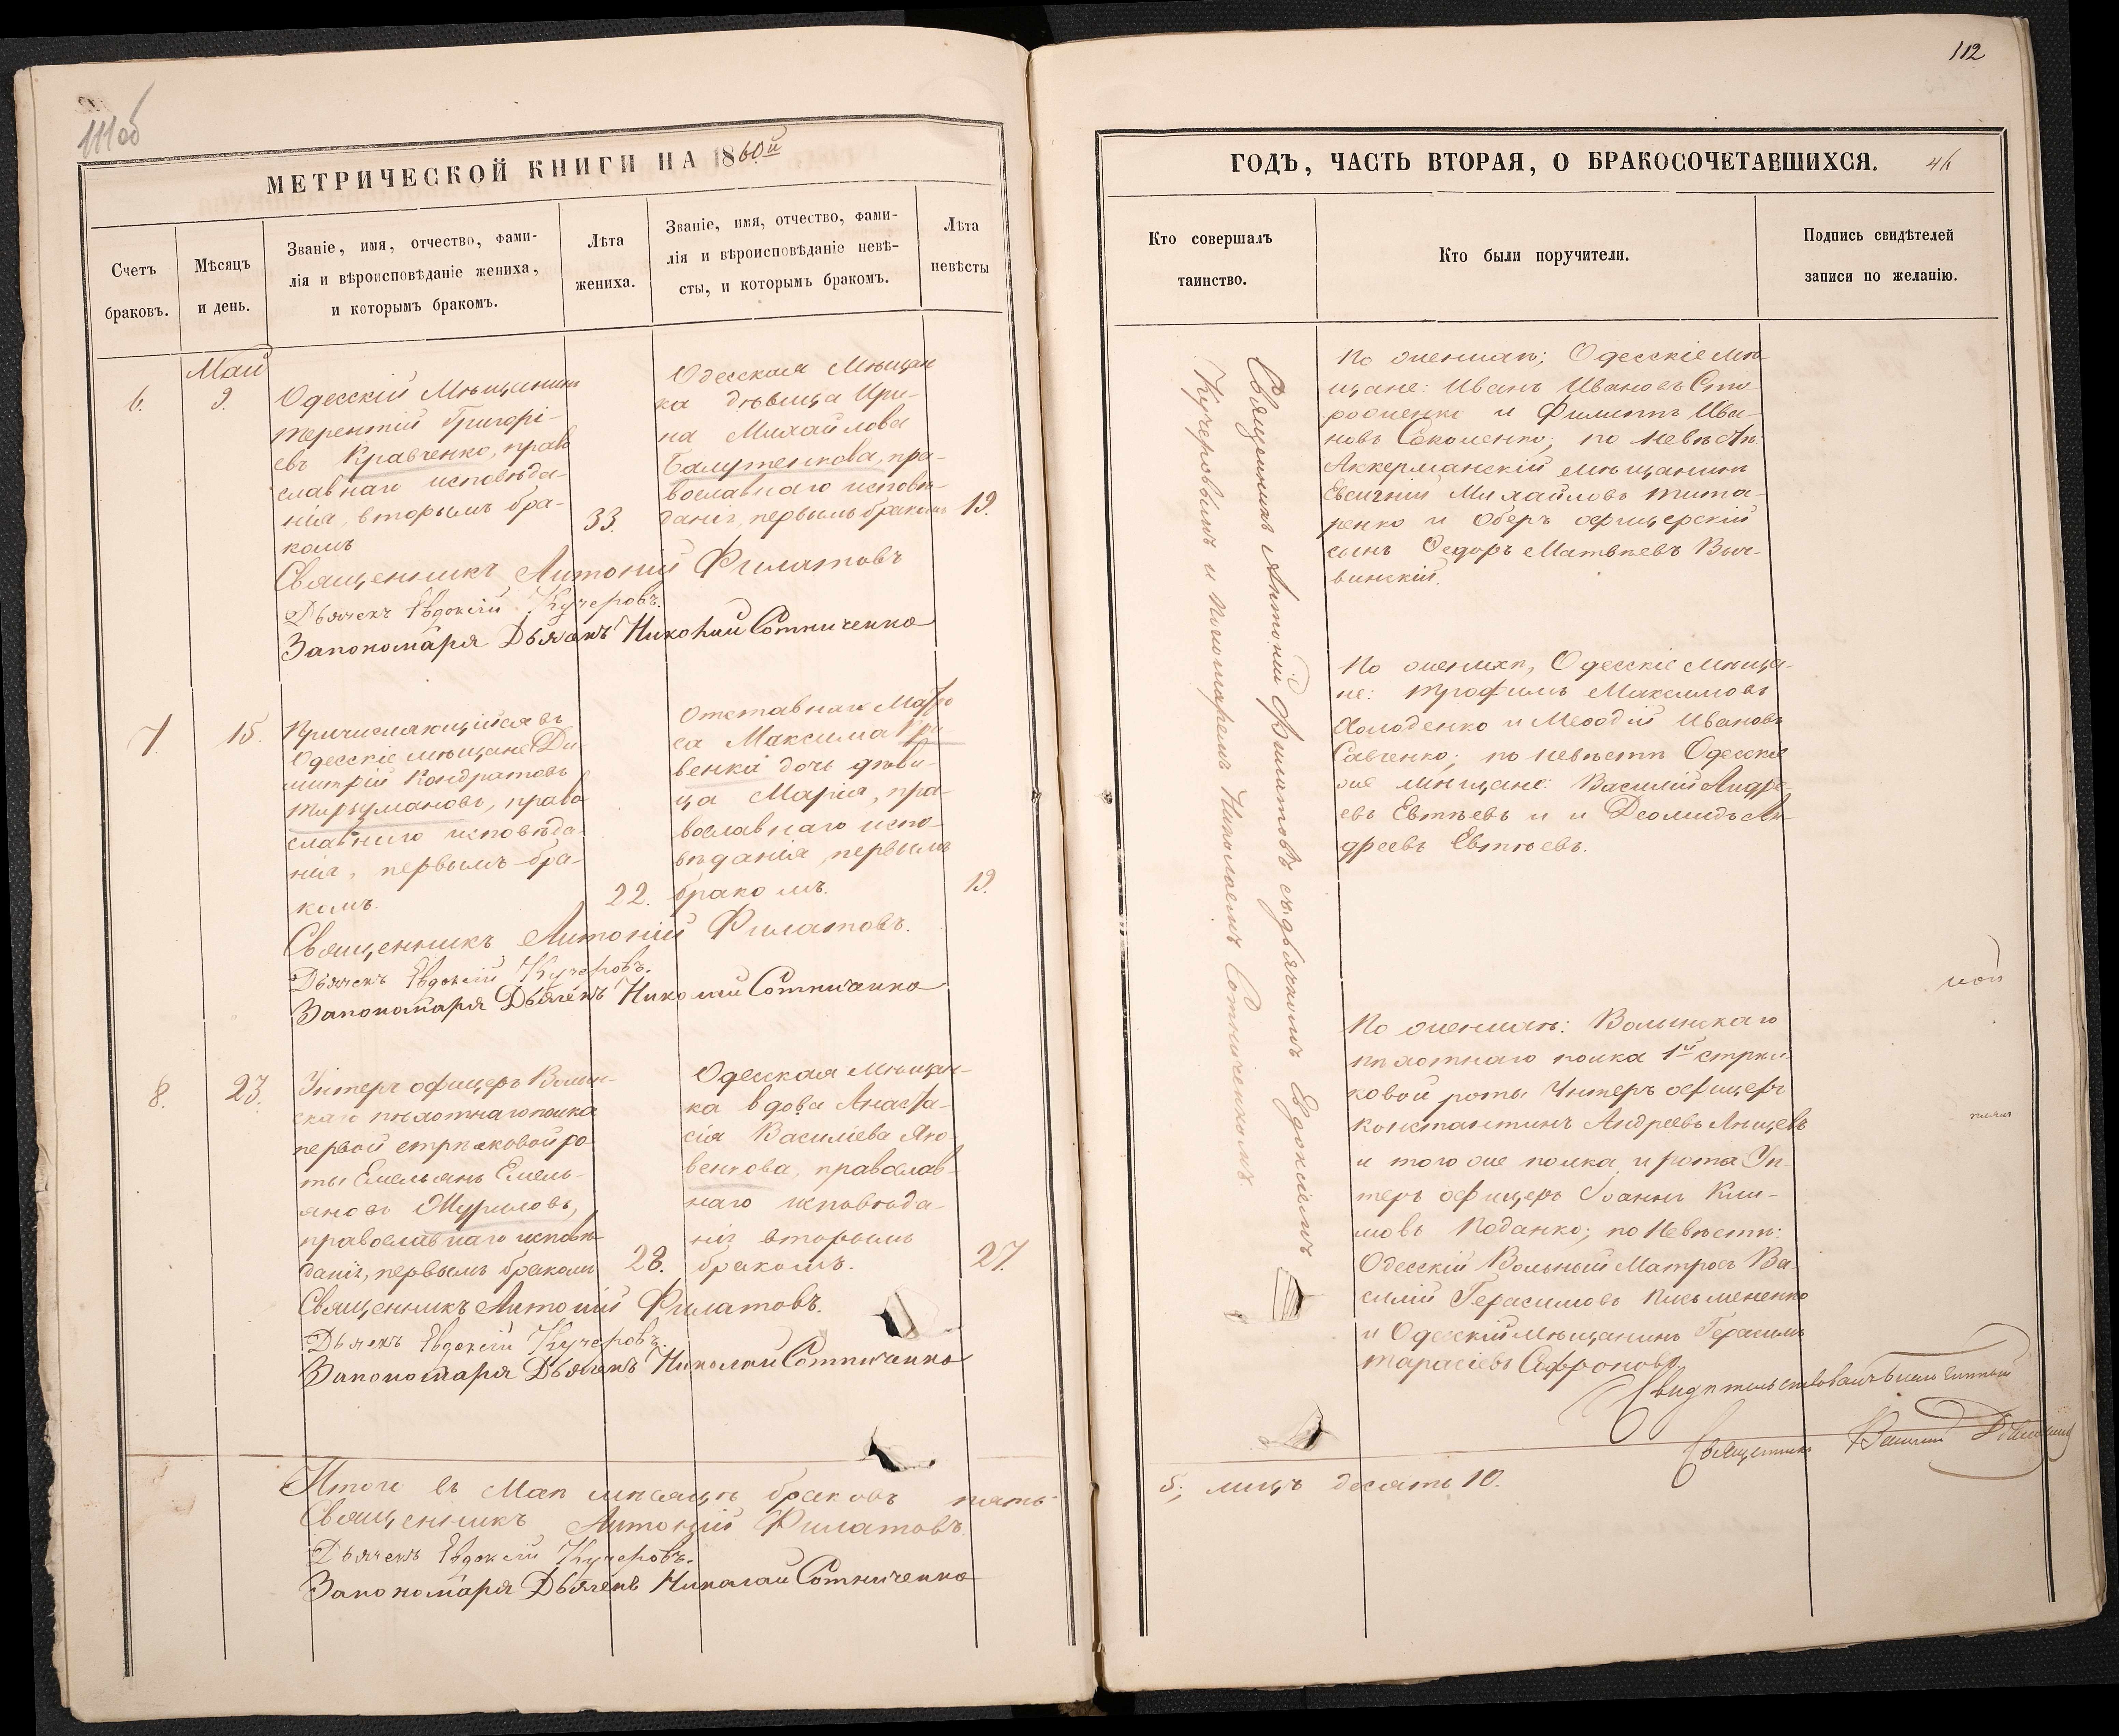 111об
МЕТРИЧЕСКОЙ КНИГИ НА 1860й
Счетъ
браковъ.
Мѣсяцъ
и день.
Званіе, имя, отчество, фами-
лія и вѣроисповѣданіе жениха,
и которымъ бракомъ.
Лѣта
жениха.
Званіе, имя, отчество, фами-
лія и вѣроисповѣданіе невѣ-
сты, и которымъ бракомъ.
Лѣта
невѣсты
Май
6.
9.
Одесскій Мѣщанинъ
Терентій Григорі-
евъ Кравченко, право
славнаго исповѣда-
нія, вторымъ бра-
комъ
33.
Одесская Мѣщан
ка дѣвица Ири-
на Михайлова
пра-
вославнаго исповѣ-
данія, первымъ бракомъ
19.
Священникъ Антоній Филатовъ
Дьячекъ Евдокій Кучеровъ.
За пономаря Дьячекъ Николай Сотниченко
7.
15.
Причисляющійся въ
Одесскіе мѣщане Ди
митрій Кондратовъ
право
славнаго исповѣда-
нія, первымъ бра-
комъ.
22.
Отставнаго Матро
са Максима Кри-
венка дочь дѣви-
ца Марія, пра-
вославнаго испо-
вѣданія, первымъ
бракомъ.
19.
Священникъ Антоній Филатовъ.
Дьячекъ Евдокій Кучеровъ.
За пономаря Дьячекъ Николай Сотниченко
8.
23.
Унтеръ офицеръ Волын-
скаго пѣхотнаго полка
первой стрѣлковой ро
ты Емельянъ Емель-
яновъ
православнаго исповѣ-
данія, первымъ бракомъ
28.
Одесская Мѣщан-
ка вдова Анаста-
сія Василіева Яко-
венкова, православ-
наго исповѣда-
нія вторымъ
бракомъ.
27.
Священникъ Антоній Филатовъ.
Дьячекъ Евдокій Кучеровъ.
За пономаря Дьячекъ Николай Сотниченко
Итого въ Маѣ мѣсяцѣ браковъ пять
Священникъ Антоній Филатовъ.
Дьячекъ Евдокій Кучеровъ.
За пономаря Дьячекъ Николай Сотниченко
112
ГОДЪ, ЧАСТЬ ВТОРАЯ, О БРАКОСОЧЕТАВШИХСЯ.
Кто совершалъ
таинство.
Кто были поручители.
Подпись свидѣтелей
записи по желанію.
Священникъ Антоній Филатовъ съ дьячкомъ Евдокіемъ
Кучеровымъ и пономаремъ Николаемъ Сотниченкомъ.
По женихѣ; Одесскіе Мѣ
щане: Иванъ Ивановъ Сто
роженко и Филиппъ Ива-
новъ Соколенко; по невѣстѣ:
Аккерманскій мѣщанинъ
Евгеній Михайловъ Тита-
ренко и Оберъ офицерскій
сынъ Ѳедоръ Матвѣевъ
винскій.
По женихѣ, Одесскіе мѣща-
не: Трофимъ Максимовъ
Холоденко и Меѳодій Ивановъ
Савченко; по невѣстѣ Одесскіе
же мѣщане: Василій Андре
евъ Евтѣевъ и и Деомидъ Ан
дреевъ Евтѣевъ.
По женихѣ: Волынскаго
пѣхотнаго полка 1й стрѣл-
ковой роты Унтеръ офицеръ
Константинъ Андреевъ
и того же полка и роты Ун-
теръ офицеръ Іоаннъ Кли-
мовъ по невѣстѣ:
Одесскій Вольный Матросъ Ва-
силій Герасимовъ Письмененко
и Одесскій Мѣщанинъ Герасимъ
Тарасіевъ Сафроновъ.
Свидѣтельствовалъ Благочинный
Священникъ
5; лицъ десять 10.